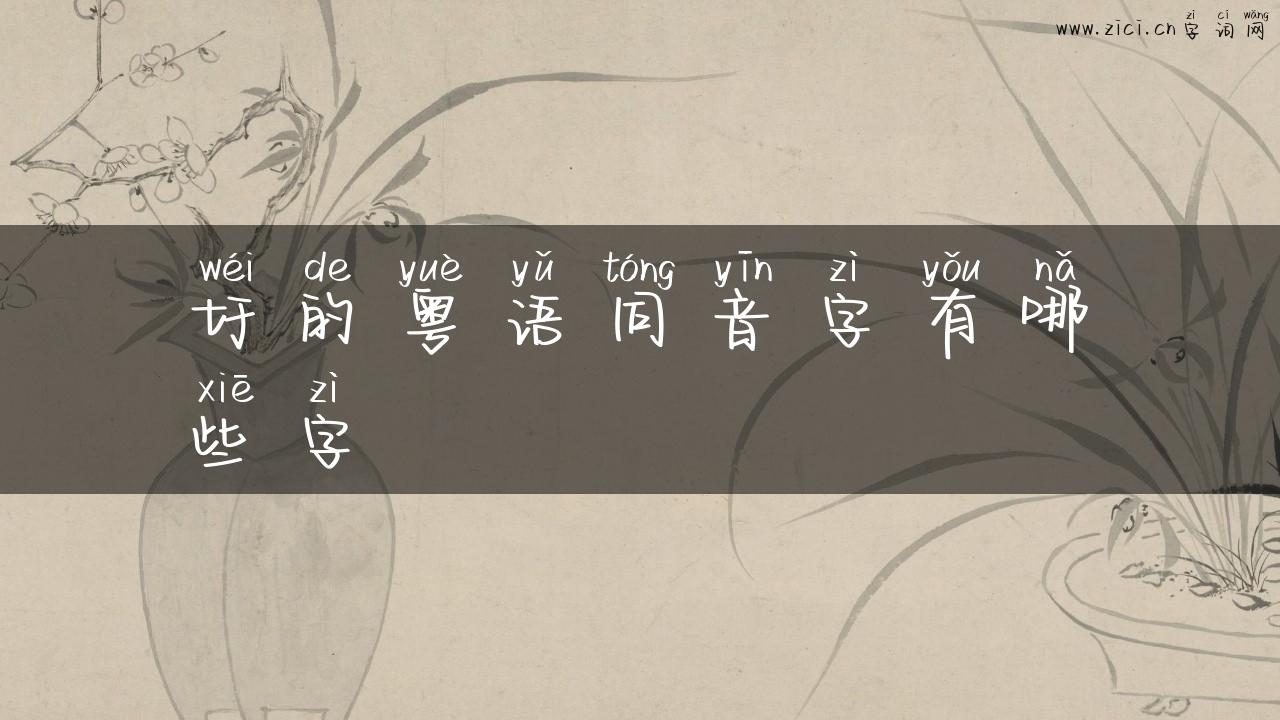 zì cí wǎng
www.zici.cn 字词网
wéi de yuè yǔ tóng yīn zì yǒu nǎ
圩的粤语同音字有哪
xiē zì
些字